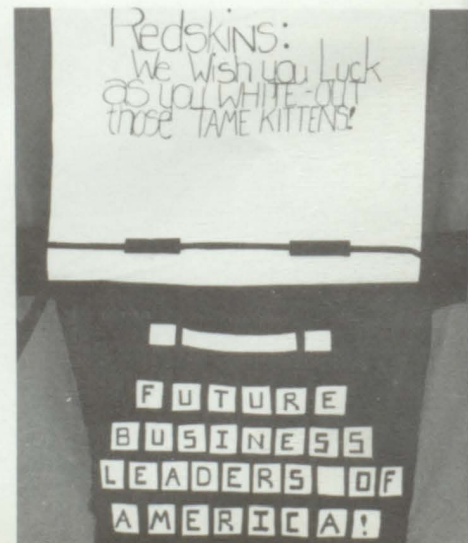 Redskins:
We Wish you Luck
as you WHITE-OUT
those TAME KITTENS!
FUTURE
BUSINESS
LEADERS OF
AMERICA!